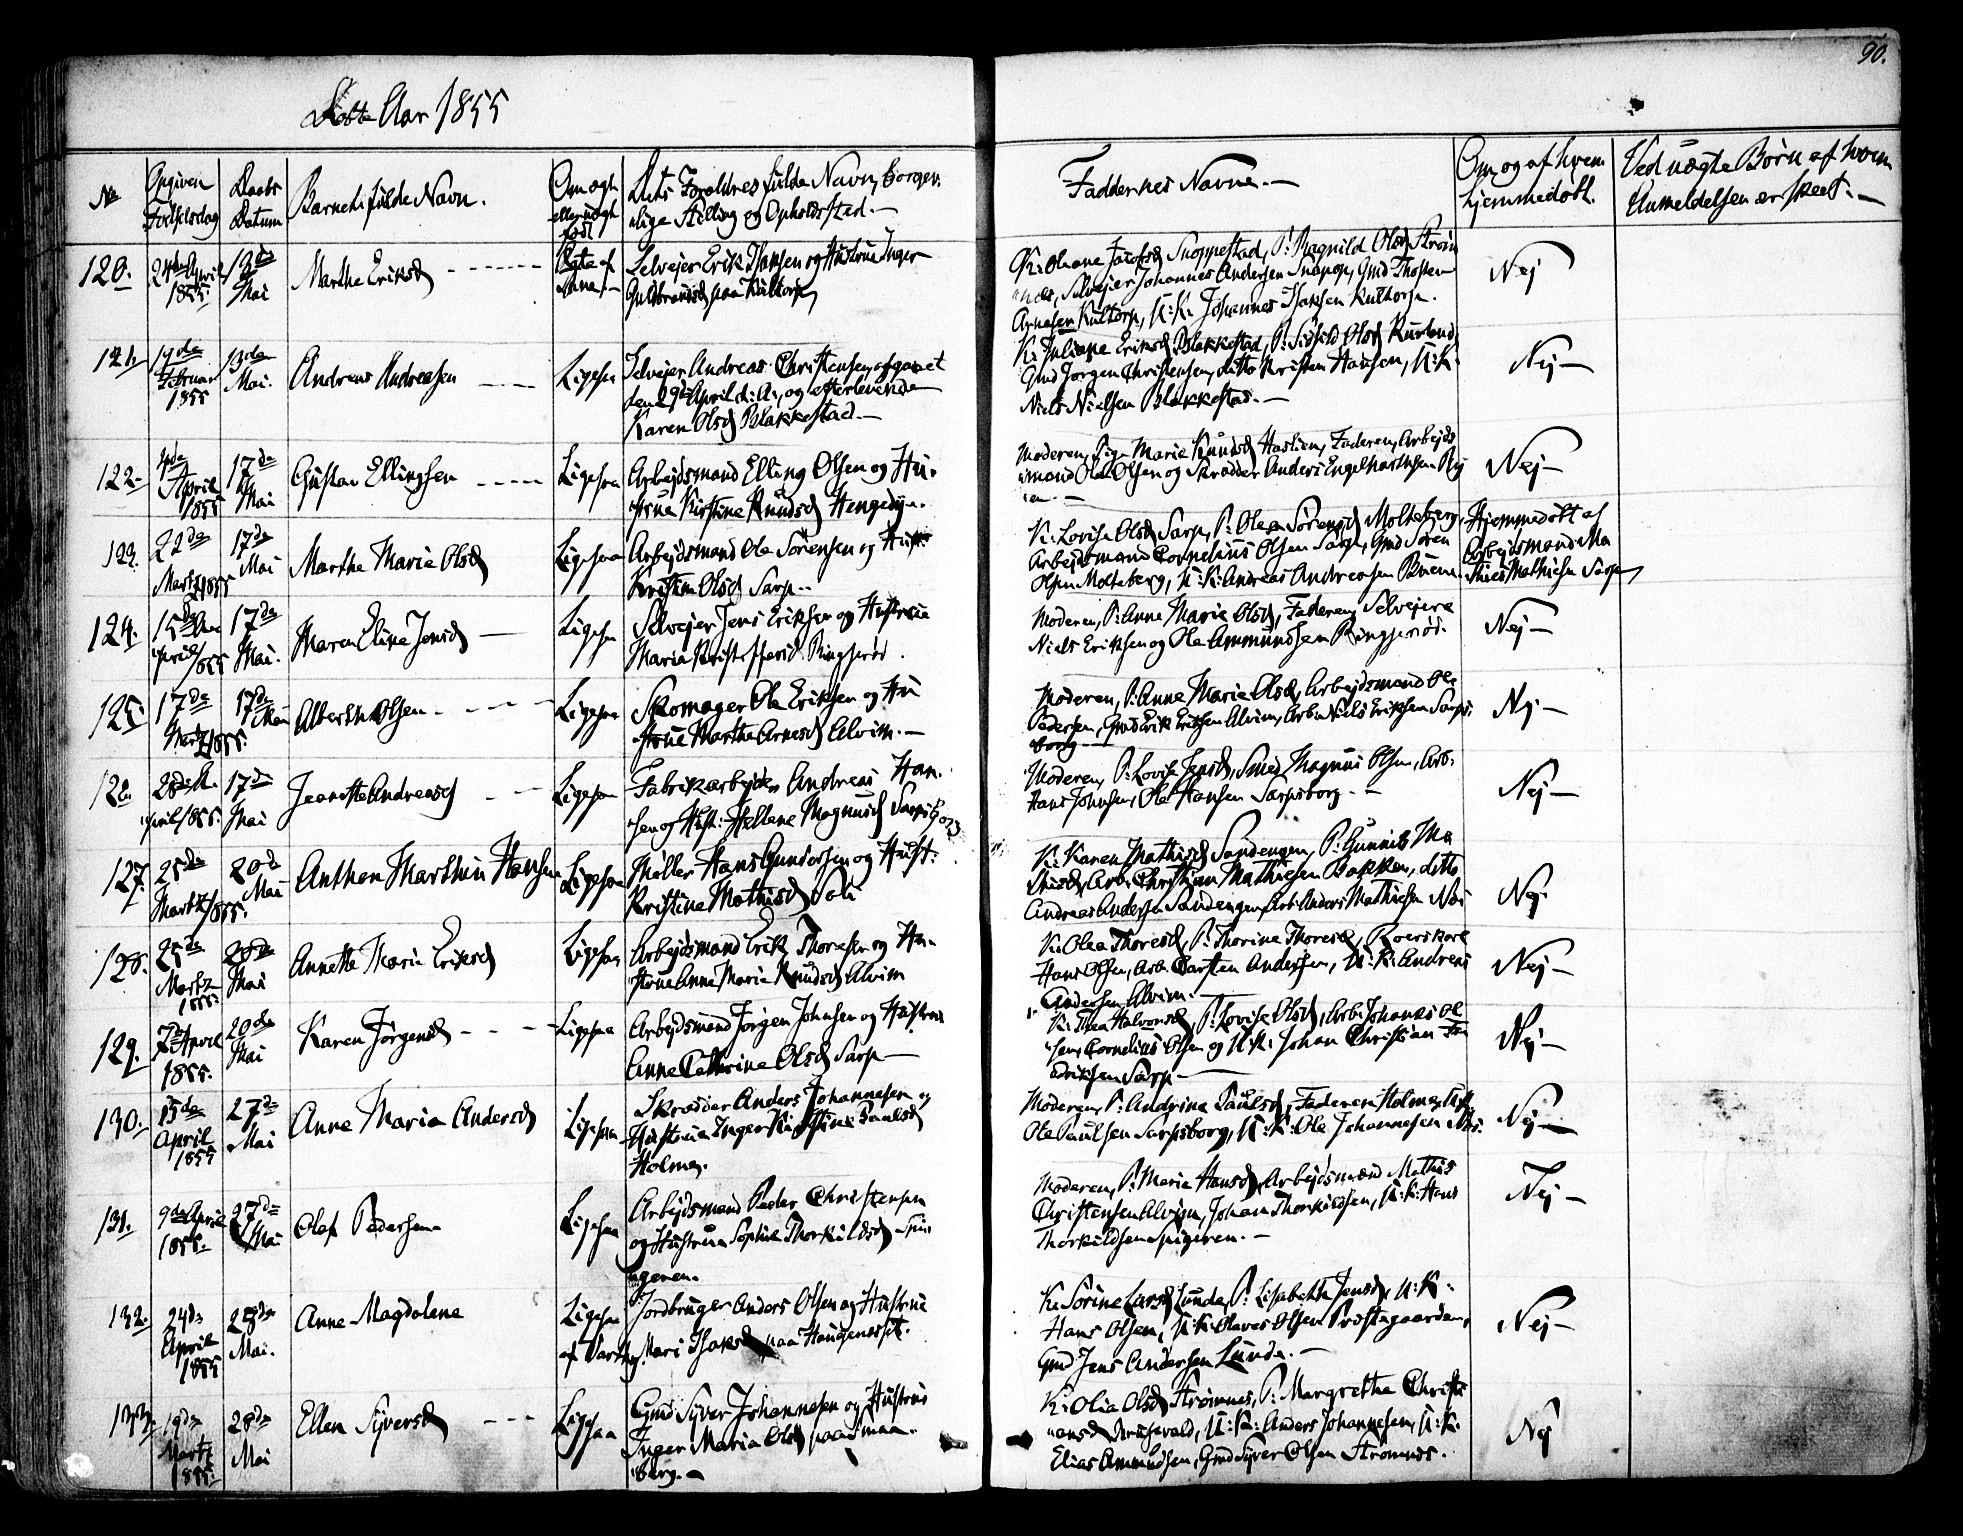 90.
Døbte Aar 1855
No
Opgiven Fødselsdag
Daabs Datum
Barnets fulde Navn.
Om ægte eller uægte født
Dets Forældres fulde Navn, borger-
-lige Stilling og Opholdssted.—
Faddernes Navne.—
Om og af hvem hjemmedøbt.
Ved uægte Børn af hvem
Anmeldelsen er skeet.—
120. 24de April 1855. 13de Mai
Marthe Eriksd
Ægte af
Selveier Erik Isaksen og Hustrue Inger
Gulbrandsd paa Kultorp
K: Oleane Jacobsd Snoppestad, P: Ragnild Olsd Strøm
-næs, Selveier Johannes Andersen Snapop, Gmd Thosten
Arnesen Kultorp, U: K: Johannes Isaksen Kultorp.
Nej
121. 19de Februar 1855 13de Mai.
Andreas Andreasen
Ligesaa
Selveier Andreas Christensen, afgaaet
den 29de April d: A:, og efterlevende
Karen Olsd Blakkestad.—
K: Juliane Eriksd Blakkestad, P: Sissild Olsd Kurland
Gmd Jørgen Christensen, ditto Kristen Hansen, U: K:
Niels Nielsen Blakkestad.—
Nej—
122. April 1855 17de Mai
Gustav Ellingsen
Ligesaa
Arbejdsmand Elling Olsen og Hu-
-strue Kirstine Knudsd Hengedyn.
Moderen, Pige Marie Knudsd Haslien, Faderen, Arbejds
-mand Ole Olsen og Skrædder Anders Engelbrethsen By
-en.—
Nej—
123. 22de Martz 1855 17de Mai
Marthe Marie Olsd
Ligesaa
Arbejdsmand Ole Sørensen og Hust:
Kristine Olsd Sarp.
K: Lovise Olsd Sarp, P: Olea Sørensd Molteberg,
Arbejdsmand Cornelius Olsen Sarp, Gmd Søren
Olsen Molteberg, U: K: Andreas Andreasen
Hjemmedøbt af
Arbejdsmand Ma
-thies Mathiesen Sarp
124. 15de April 1855 17de Mai.
Maren Eline Jensd
Ligesaa
Selvejer Jens Eriksen og Hustrue
Maria Kristoffersd. Ringstrød.
Moderen, P: Anne Marie Olsd, Faderen, Selvejere
Niels Eriksen og Ole Ammundsen Ringstrød.
Nej—
125. 17de Martz 1855. 17de Mai
Alberth Olsen
Ligesaa
Skomager Ole Eriksen og Hu
-strue Marthe Arnesd Alvim.—
Moderen, P: Anne Marie Olsd, Arbejdsmand Ole
Pedersen, Gmd Erik Eriksen Alvim, Arb: Niels Eriksen Sarps
borg—
Nej—
126. 28de April 1855. 17de Mai
Jeanette Andreasd
Ligesaa
Fabrikarbejder Andreas Han-
-sen og Hust: Hellene Magnusd Sarpsborg
Moderen, P: Lovise Jensd, Smed Magnus Olsen, Arb:
Hans Johnsen, Ole Hansen Sarpsborg.—
Nej—
127. 25de Martz 1855. 20de Mai
Anthon Marthin Hansen
Ligesaa
Møller Hans Gundersen og Hust:
Kristine Mathisd Soli
K: Karen Mathisd Sandengen, P: Gunnild Ma
-thisd, Arb: Christian Mathiesen Bakken, ditto
Andreas Andersen Sandengen, Arb: Anders Mathiesen
Nej.
128. 25de Martz 1855. 20de Mai
Annette Marie Eriksd
Ligesaa
Arbejdsmand Erik Thoresen og Hu-
-strue Anne Marie Knudsd Alvim
K: Olea Thoresd, P: Thorine Thoresd, Roerskarl
Hans Olsen, Arb: Carsten Andersen, U: K: Andreas
Andersen Alvim.—
Nej—
129. 7de April 1855. 20de Mai
Karen Jørgensd
Ligesaa
Arbejdsmand Jørgen Johnsen og Hustrue
Anne Cathrine Olsd Sarp—
K: Thea Halvorsd, P: Lovise Olsd, Arb: Johannes Ol
-sen, Cornelius Olsen og U: K: Johan Christian Fre
-driksen Sarp—
Nej—
130. 15de April 1855 27de Mai
Anne Maria Andersd
Ligesaa
Skrædder Anders Johannesen og
Hustrue Inger Kirstine Paulsd
Holmen.
Moderen, P: Andrine Paulsd, Faderen Holmen,
Ole Paulsen Sarpsborg, U: K: Ole Johannesen
Nej—
131. 9de April 1855. 27de Mai
Olaf Pedersen
Ligesaa
Arbejdsmand Peder Christensen
og Hustrue Sophie Thorkildsd Spi-
-geren.
Moderen, P: Marie Hansd, Arbejdsmand Mathis
Christensen Alvim, Johan Thorkildsen, U: K: Hans
Thorkildsen Spigeren.—
Nej—
132. 24de April 1855 28de Mai.
Anne Magdolene
Ligesaa af Varteig
Jordbruger Anders Olsen og Hustrue
Mari Isaksd paa Haugensset.
K: Sorine Larsd Lunde, P: Lisabeth Jensd, U: K:
Hans Olsen, U: K: Olaves Olsen Præstegaarden,
Gmd Jens Andersen Lunde.—
Nej—
133. 19de Martz 1855. 28de Mai
Ellen Syversd
Ligesaa
Gmd Syver Johannesen og Hustrue
Inger Maria Olsd paa
-berg.—
K: Olia Olsd Strømnes, P: Margrethe Christi
-ansd, U: K: Anders Johannesen, U: K:
Elias Ammundsen, Gmd Syver Olsen Strømnes.
Nej